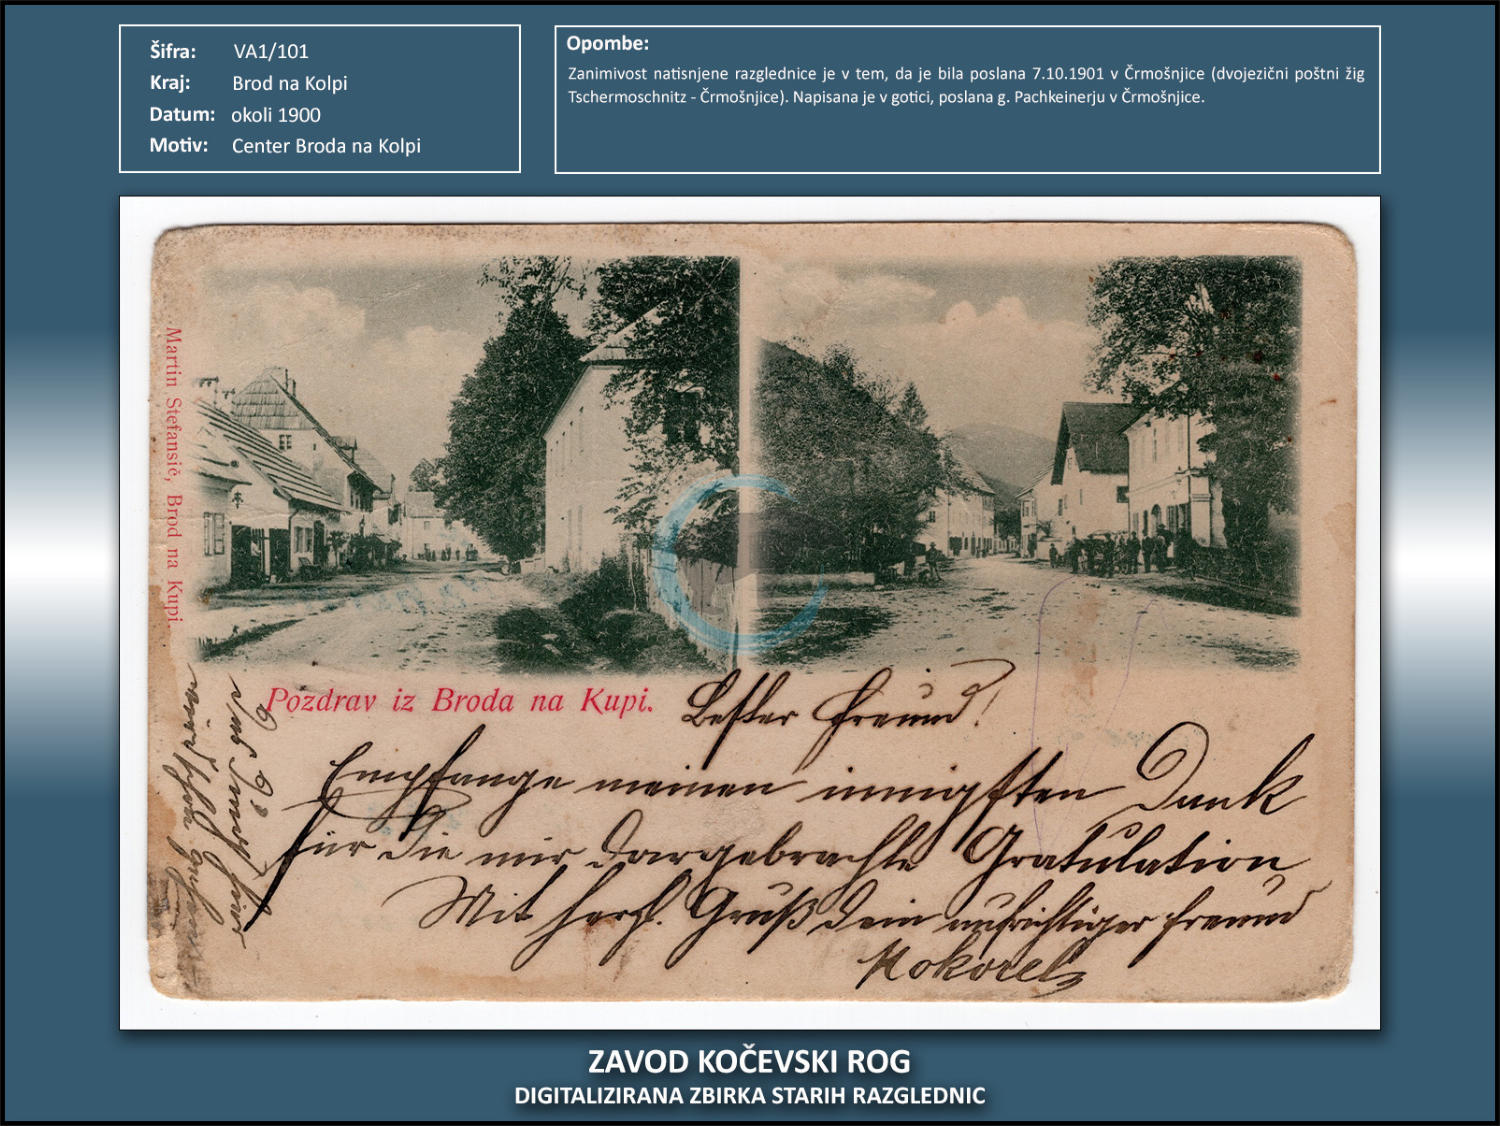 Šifra: VA1/101
Kraj: Brod na Kolpi
Datum: okoli 1900
Motiv: Center Broda na Kolpi
Opombe:
Zanimivost natisnjene razglednice je v tem, da je bila poslana 7.10.1901 v Črmošnjice (dvojezični poštni žig
Tschermoschnitz - Črmošnjice). Napisana je v gotici, poslana g. Pachkeinerju v Črmošnjice.
Martin Stefansič, Brod na Kupi.
Pozdrav iz Broda na Kupi.
Bester Freund!
Empfange meinen innigsten Dank
für die mir dargebrachte Gratulation
Mit herzl. Gruß dein aufrichtiger Freund
ZAVOD KOČEVSKI ROG
DIGITALIZIRANA ZBIRKA STARIH RAZGLEDNIC